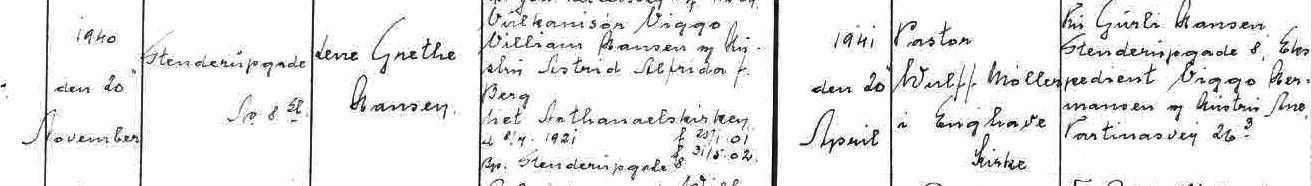 1940
den 20'
November
Stenderupgade
No 8 st.
Lene Grethe
Hansen.
Vulkanisør Viggo
William Hansen og Hu-
stru Astrid Alfrida f.
Berg
viet Nathanaelskirken
d. 8/4. 1921 f. 25/1 01
f. 31/5 02.
Bp. Stenderupgade 8
1941
den 20'
April
Pastor
Wulff Møller
i Enghave
Kirke
Frk Gurli Hansen.
Stenderupgade 8, Eks
pedient Viggo Her-
mansen og Hustru
26³